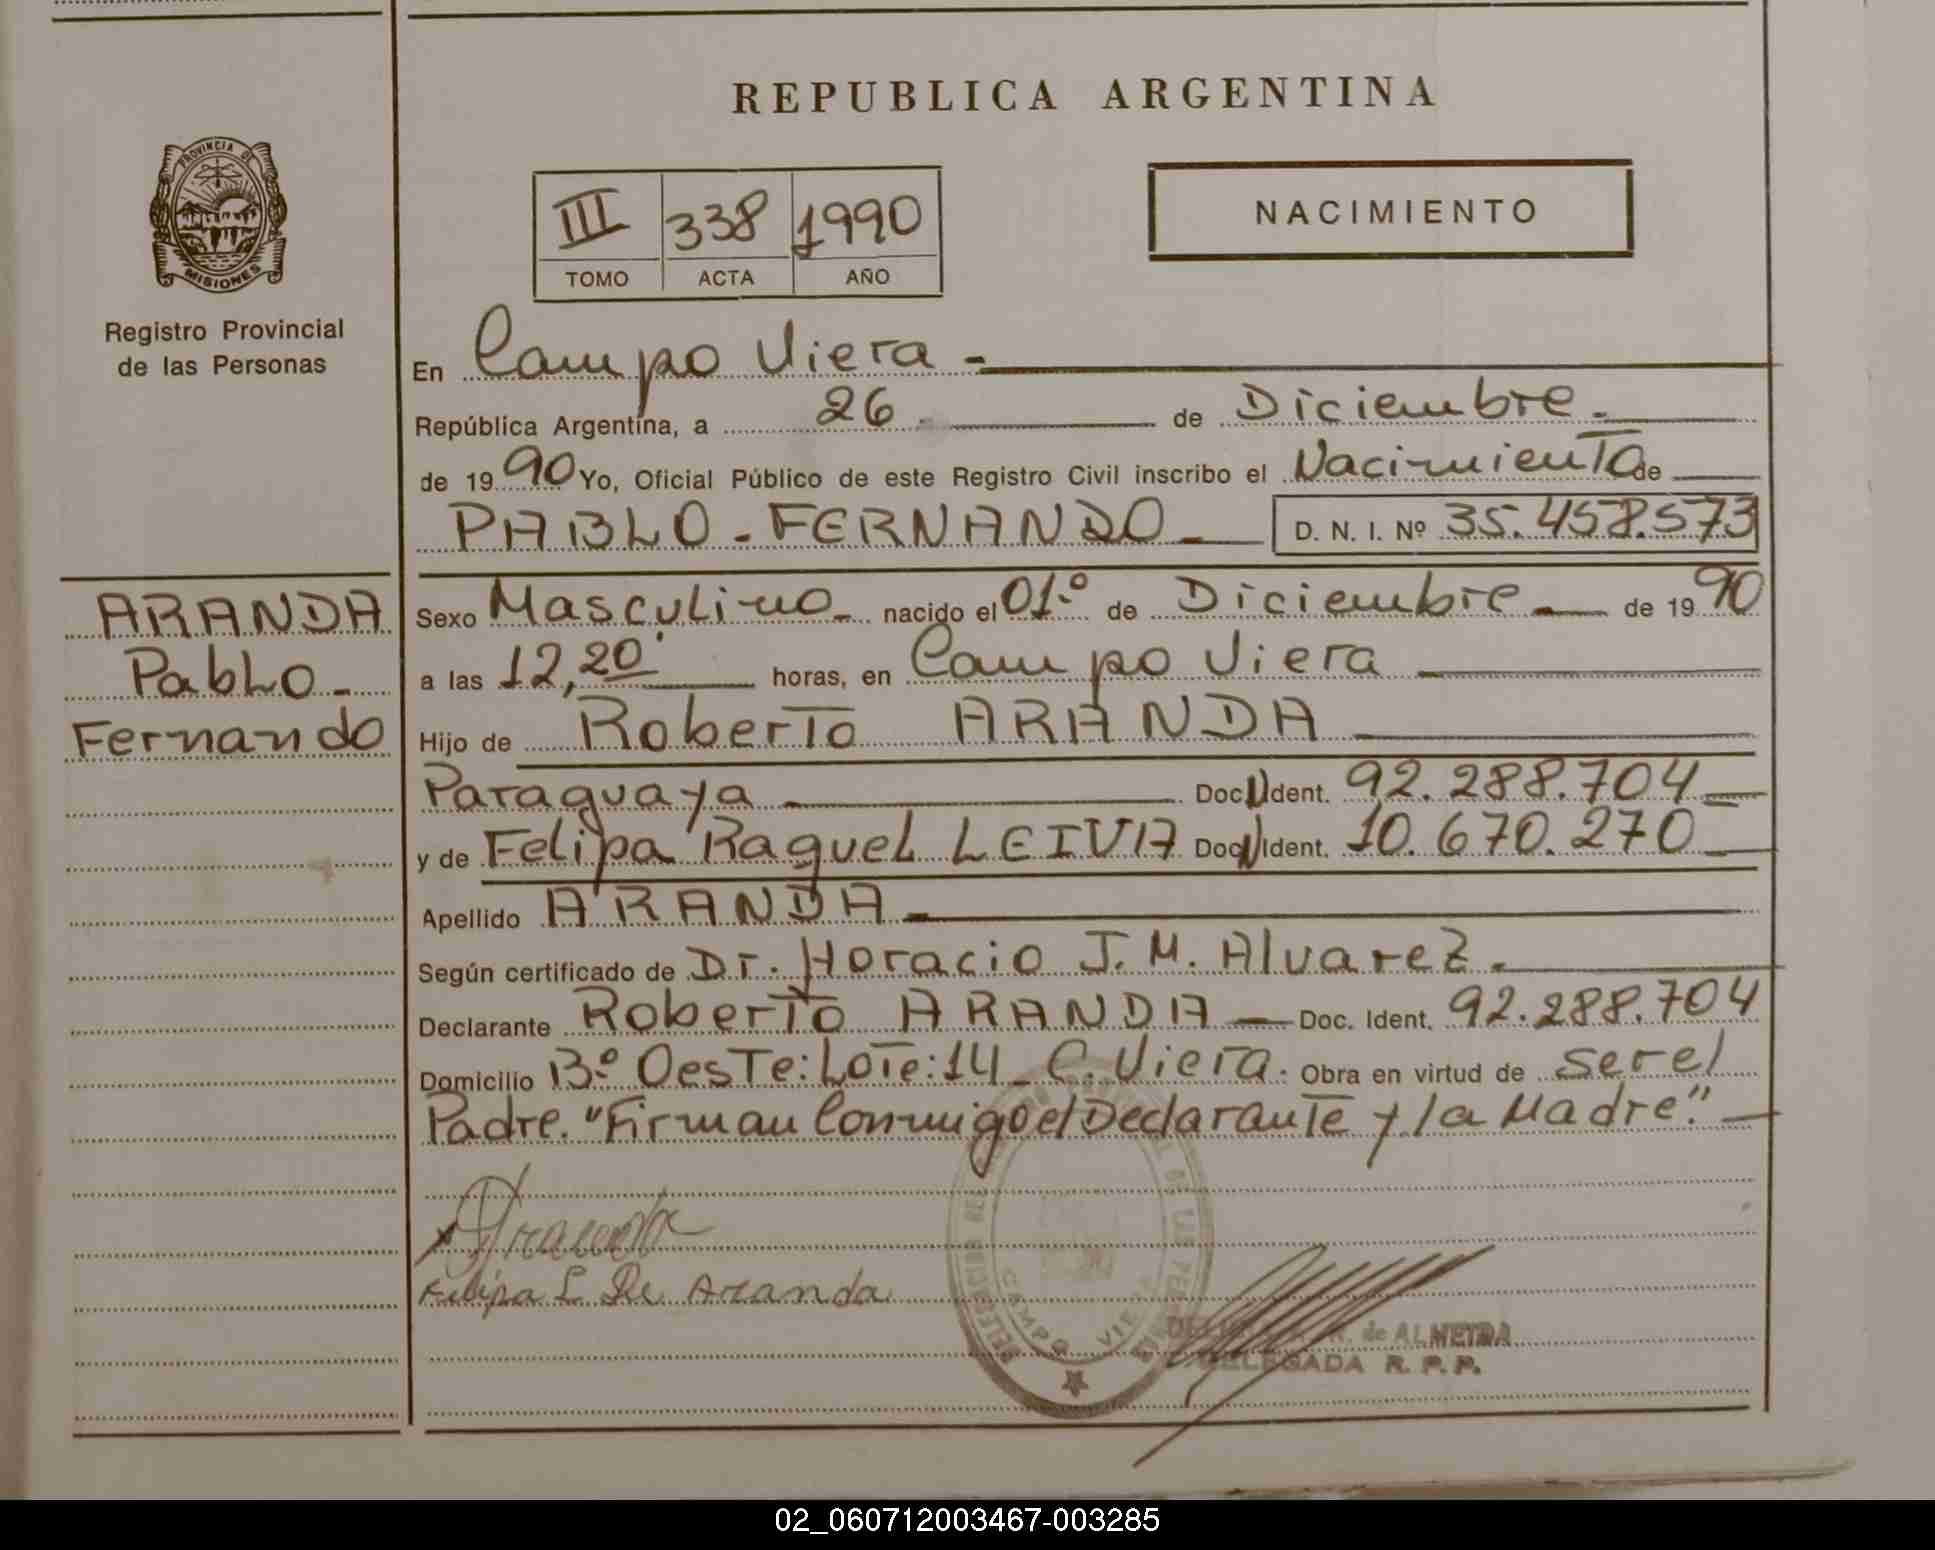 REPUBLICA ARGENTINA
PROVINCIA DE
MISIONES
Registro Provincial
de las Personas
III 338 1990
TOMO ACTA AÑO
NACIMIENTO
En Campo Viera -
República Argentina, a 26 de Diciembre.
de 1990 Yo, Oficial Público de este Registro Civil inscribo el Nacimiento de
PABLO - FERNANDO - D. N. I. Nº 35.458.573
ARANDA
Pablo -
Fernando
Sexo Masculino - nacido el 01º de Diciembre - de 1990
a las 12,20' horas, en Campo Viera
Hijo de Roberto ARANDA
Paraguaya - Doc. Ident. 92.288.704 -
y de Felipa Raquel LEIVA Doc. Ident. 10.670.270 -
Apellido ARANDA -
Según certificado de Dr. Horacio J. M. Alvarez.
Declarante Roberto ARANDA - Doc. Ident. 92.288.704
Domicilio B.º Oeste: Lote: 14 - C. Viera. Obra en virtud de ser el
Padre. "Firman Conmigo el Declarante y la Madre." -
Felipa L De Aranda
CAMPO VIERA
de ALMEIDA
DELEGADA R. P. P.
02_060712003467-003285